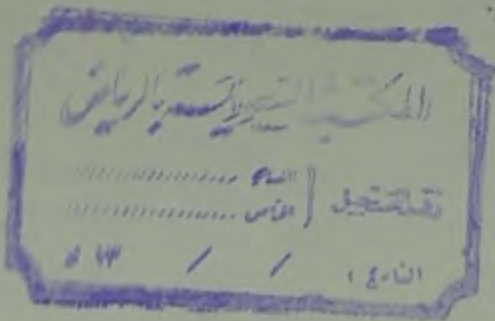 المكتبة السعودية بالرياض
رقم التسجيل
العام ..............
الخاص ..............
التاريخ : / / ١٣ هـ